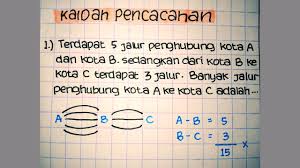 KAIDAH PENCACAHAN
1.) Terdapat 5 jalur penghubung kota A
dan kota B. sedangkan dari kota B ke
kota C terdapat 3 jalur. Banyak jalur
penghubung kota A ke kota C adalah...
A B C
A - B = 5
B - C = 3 x
15